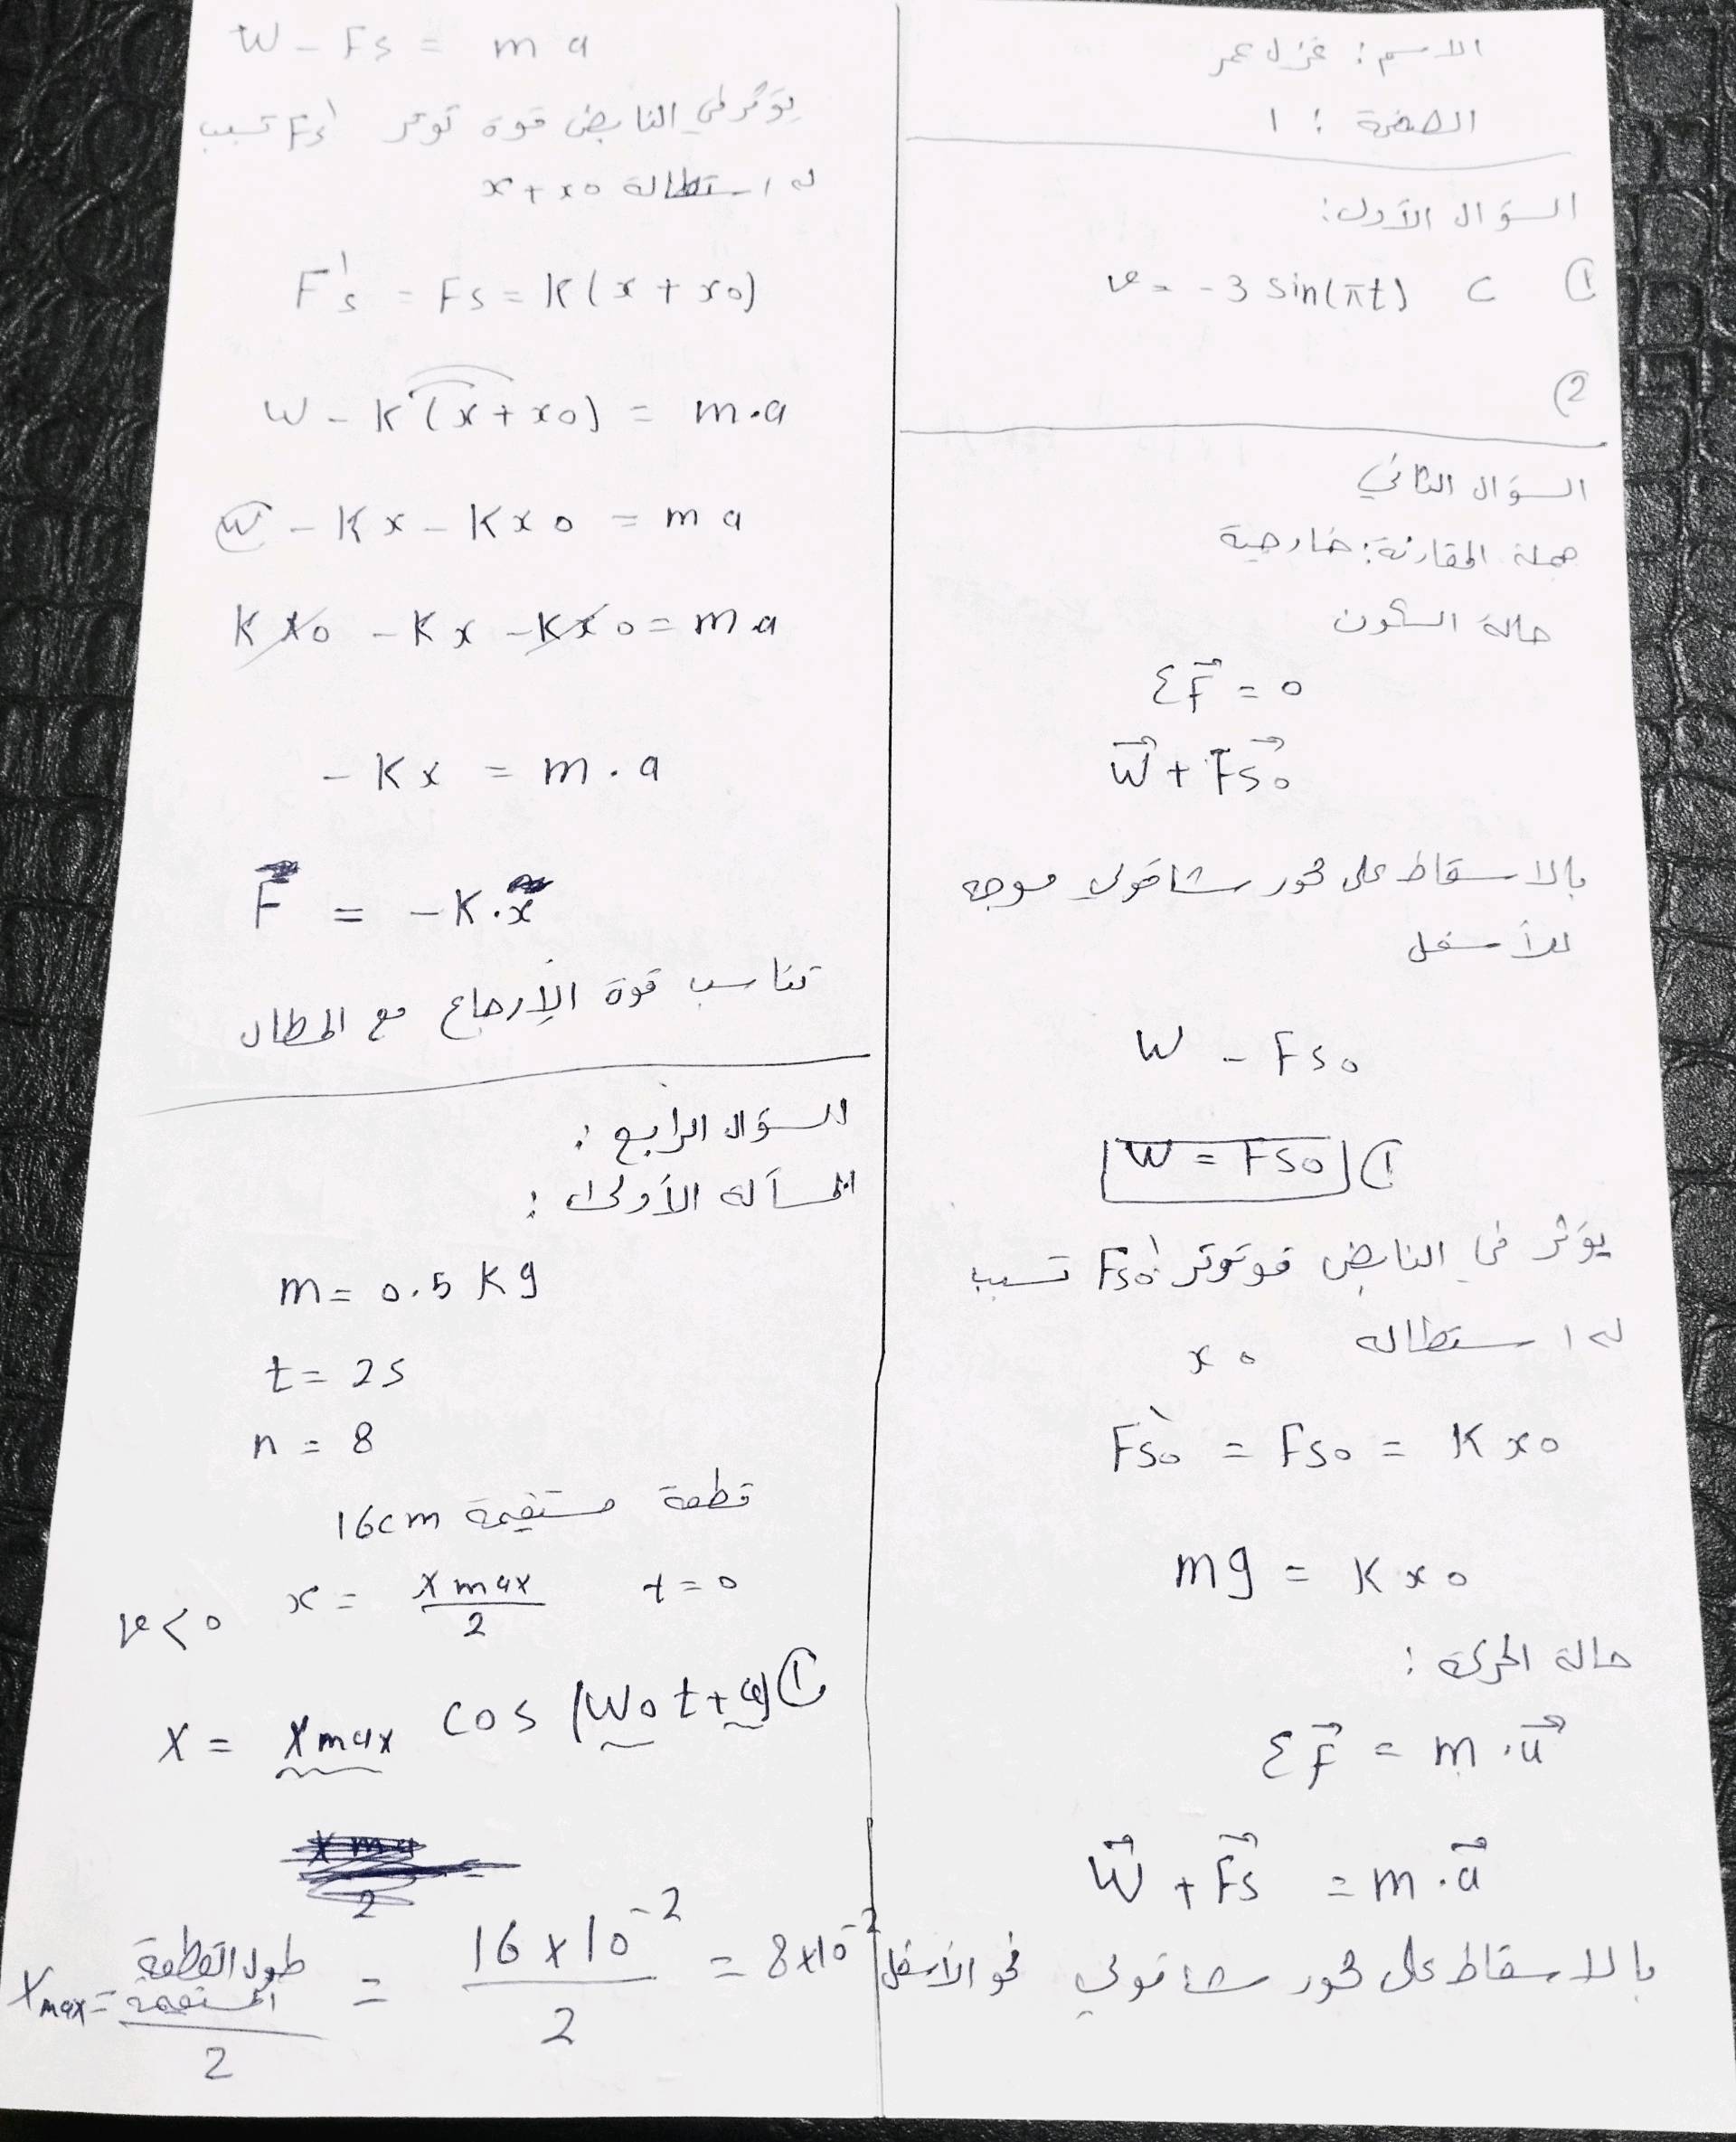 الاسم: غزل عمر
الصفحة: ١
السؤال الأول:
① c v = -3 sin(πt)
②
السؤال الثاني
جملة المقارنة: خارجية
حالة السكون
Σ\vec{F} = 0
\vec{W} + \vec{Fs_0}
بالاسقاط على محور شاقولي موجه
للأسفل
W - Fs_0
W = Fs_0 ①
يؤثر في النابض قوتوتر Fs_0' تسبب
له استطاله x_0
Fs_0' = Fs_0 = K x_0
mg = K x_0
حالة الحركة:
Σ\vec{F} = m . \vec{a}
\vec{W} + \vec{Fs} = m . \vec{a}
بالاسقاط على محور شاقولي نحو الأسفل
W - Fs = m a
يؤثر في النابض قوة توتر Fs' تسبب
له استطالة x + x_0
F's = Fs = K(x + x_0)
W - K(x + x_0) = m.a
W - Kx - Kx_0 = m a
Kx_0 - Kx - Kx_0 = m a
- Kx = m . a
F = - K . x
تناسب قوة الإرجاع مع المطال
السؤال الرابع:
المسألة الأولى:
m = 0.5 Kg
t = 2s
n = 8
قطعة مستقيمة 16cm
v < 0 x = \frac{x max}{2} t = 0
x = x max cos (W_0 t + φ) ①
x max = \frac{طول القطعة المستقيمة}{2} = \frac{16 × 10^{-2}}{2} = 8×10^{-2}